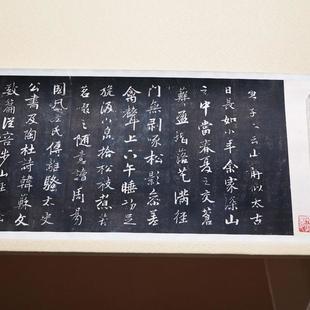 唐子西云山靜似太古
日長如小年余家深山
之中當春夏之交蒼
蘚盈堦落花滿徑
門無剝啄松影參差
禽聲上下午睡初足
旋汲山泉拾松枝煮苦
茗啜之隨意讀周易
國風左氏傳離騷太史
公書及陶杜詩韓蘇文
數篇從容步山